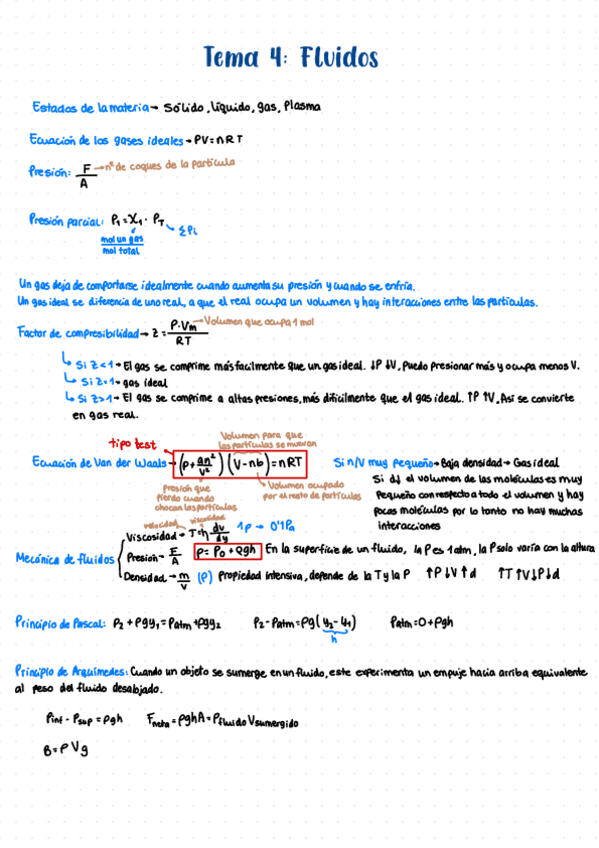 Tema 4: Fluidos
Estados de la materia → Sólido, líquido, gas, Plasma
Ecuación de los gases ideales → PV=nRT
Presión: F/A → nº de coques de la partícula
Presión parcial: P₁ = X₁ · P_T → ΣPi
mol un gas / mol total
Un gas deja de comportarse idealmente cuando aumenta su presión y cuando se enfría.
Un gas ideal se diferencia de uno real, a que el real ocupa un volumen y hay interacciones entre las partículas.
Factor de compresibilidad → Z = P·Vm / RT → Volumen que ocupa 1 mol
Si Z<1 → El gas se comprime más facilmente que un gas ideal. ↓P ↓V. Puedo presionar más y ocupa menos V.
Si Z=1 → gas ideal
Si Z>1 → El gas se comprime a altas presiones, más dificilmente que el gas ideal. ↑P ↑V. Así se convierte
en gas real.
tipo test
Volumen para que
las partículas se muevan
Ecuación de Van der Waals → (p + an²/V²)(V-nb) = nRT
Presión que
pierdo cuando
chocan las partículas
Volumen ocupado
por el resto de partículas
Si n/V muy pequeño → Baja densidad → Gas ideal
Si d↓ el volumen de las moléculas es muy
pequeño con respecto a todo el volumen y hay
pocas moléculas por lo tanto no hay muchas
interacciones
Mecánica de fluidos
velocidad viscosidad
Viscosidad → T=η dv/dy 1p → 0'1Pa
Presión → F/A P = P₀ + ρgh En la superficie de un fluido, la P es 1 atm, la P solo varía con la altura
Densidad → m/V (ρ) Propiedad intensiva, depende de la T y la P ↑P↓V↑d ↑T↑V↓P↓d
Principio de Pascal: P₂ + ρgy₁ = Patm + ρgy₂ P₂ - Patm = ρg(y₂ - y₁) Patm = 0 + ρgh
h
Principio de Arquímedes: Cuando un objeto se sumerge en un fluido, este experimenta un empuje hacia arriba equivalente
al peso del fluido desalojado.
Pinf - Psup = ρgh Fneta = ρghA = ρfluido Vsumergido
B = ρVg